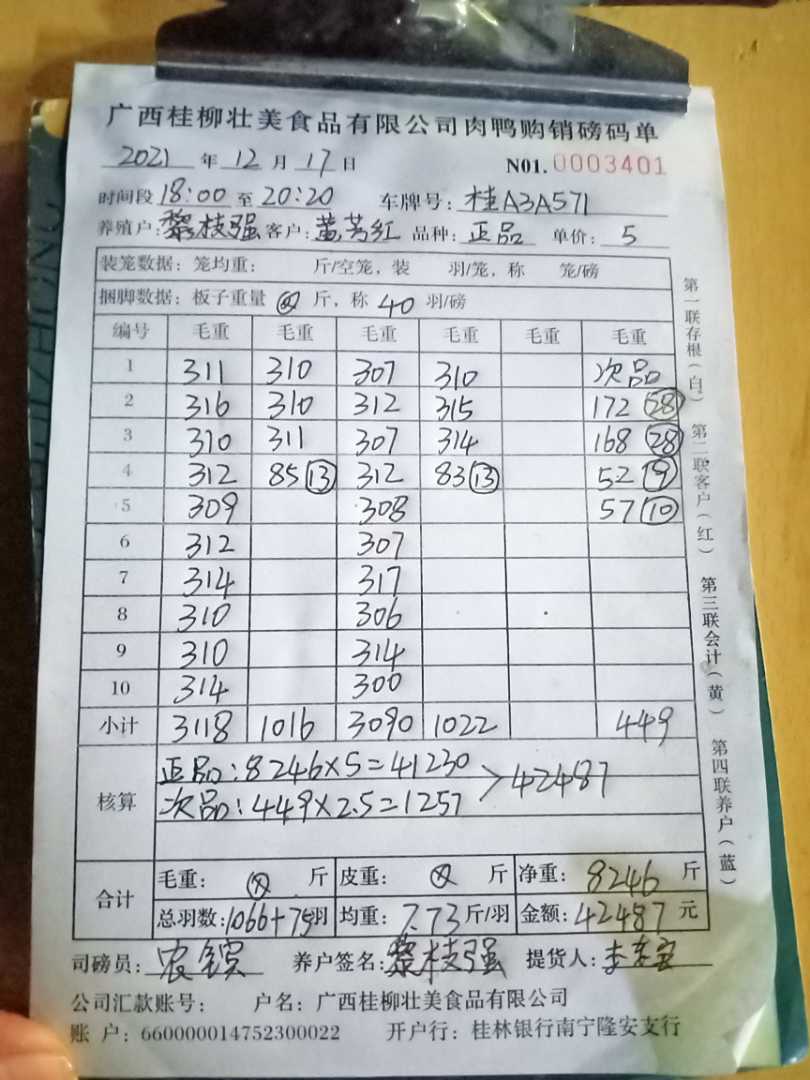 广西桂柳壮美食品有限公司肉鸭购销磅码单
2021 年 12 月 17 日 N01. 0003401
时间段 18:00 至 20:20 车牌号: 桂A3A571
养殖户: 黎枝强 客户: 黄芳红 品种: 正品 单价: 5
装笼数据: 笼均重: 斤/空笼, 装 羽/笼, 称 笼/磅
捆脚数据: 板子重量 ⊗ 斤, 称 40 羽/磅
编号 毛重 毛重 毛重 毛重 毛重 毛重
1 311 310 307 310 次品
2 316 310 312 315 172 (28)
3 310 311 307 314 168 (28)
4 312 85 (13) 312 83 (13) 52 (9)
5 309 308 57 (10)
6 312 307
7 314 317
8 310 306
9 310 314
10 314 300
小计 3118 1016 3090 1022 449
核算 正品: 8246×5=41230 > 42487
次品: 449×2.5=1257
合计 毛重: ⊗ 斤 皮重: ⊗ 斤 净重: 8246 斤
总羽数: 1066+75羽 均重: 7.73 斤/羽 金额: 42487 元
司磅员: 农 养户签名: 黎枝强 提货人: 李
公司汇款账号: 户名: 广西桂柳壮美食品有限公司
账 户: 660000014752300022 开户行: 桂林银行南宁隆安支行
第一联存根(白) 第二联客户(红) 第三联会计(黄) 第四联养户(蓝)